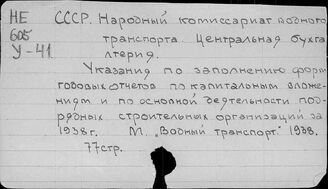 НЕ СССР. Народный комиссариат водного
605 транспорта. Центральная бухга-
У-41 лтерия.
Указания по заполнению форм
годовых отчетов по капитальным вложе-
ниям и по основной деятельности под-
рядных строительных организаций за
1938г. М. "Водный транспорт." 1938.
77стр.